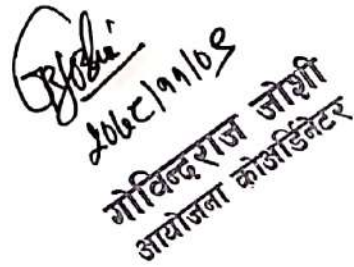 २०७८/११/०९
गोविन्दराज जोशी
आयोजना कोअर्डिनेटर